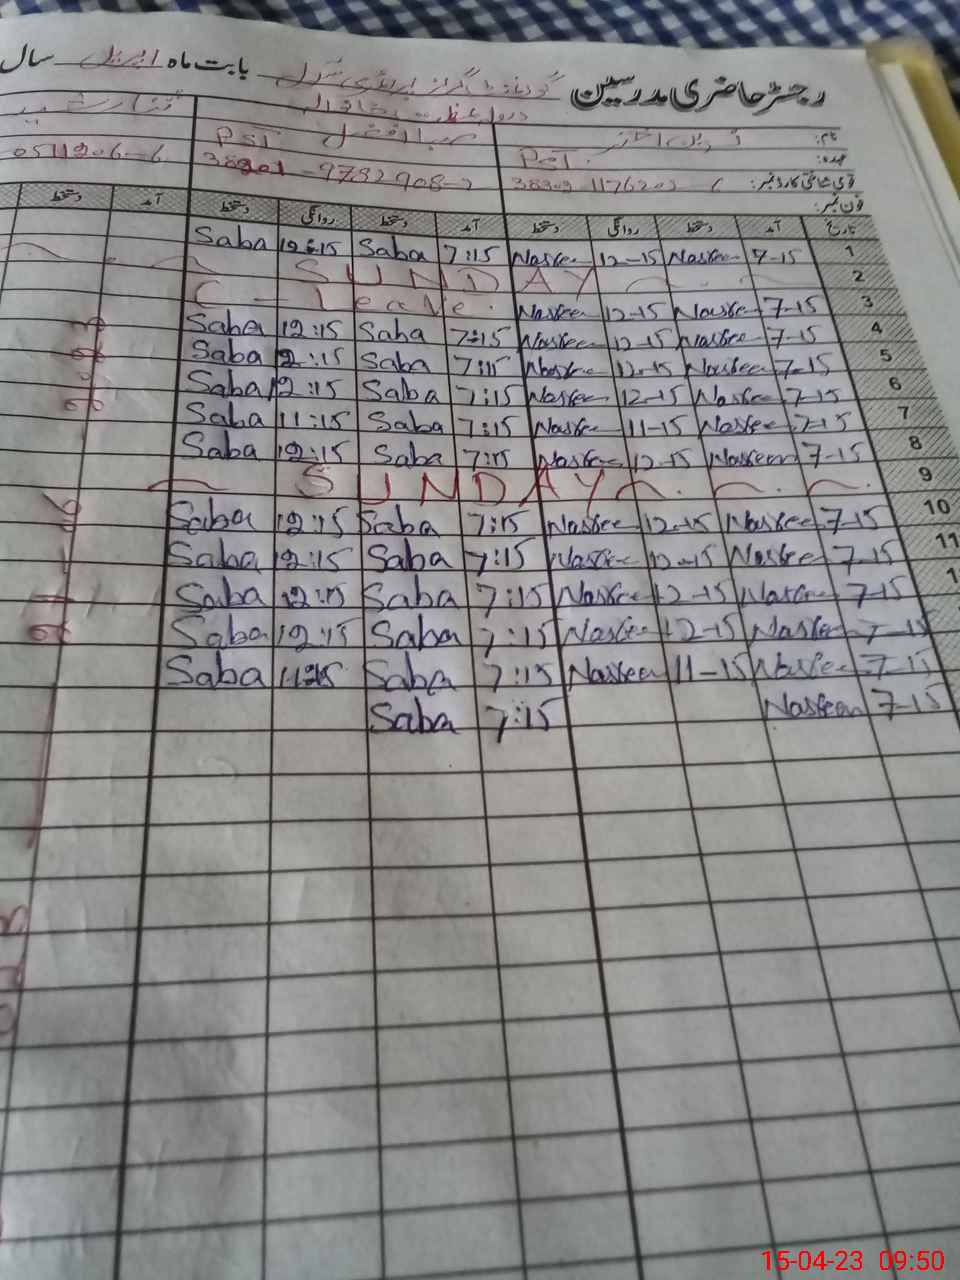 رجسٹر حاضری مدرسین گورنمنٹ گرلز پرائمری سکول بابت ماہ اپریل سال
نام:
عہدہ: PST. PST
قومی شناختی کارڈ نمبر: 38201-9782908-2 0511206-6
فون نمبر:
تاریخ آمد دستخط روانگی دستخط آمد دستخط روانگی دستخط آمد دستخط
1 7-15 Nasreen 12-15 Nasreen 7:15 Saba 12:15 Saba
2 SUNDAY
3 7-15 Nasreen 12-15 Nasreen C-Leave.
4 7-15 Nasreen 12-15 Nasreen 7:15 Saba 12:15 Saba
5 7-15 Nasreen 12-15 Nasreen 7:15 Saba 12:15 Saba
6 7-15 Nasreen 12-15 Nasreen 7:15 Saba 12:15 Saba
7 7-15 Nasreen 11-15 Nasreen 7:15 Saba 11:15 Saba
8 7-15 Nasreen 12-15 Nasreen 7:15 Saba 12:15 Saba
9 SUNDAY
10 7-15 Nasreen 12-15 Nasreen 7:15 Saba 12:15 Saba
11 7-15 Nasreen 12-15 Nasreen 7:15 Saba 12:15 Saba
7-15 Nasreen 12-15 Nasreen 7:15 Saba 12:15 Saba
7-15 Nasreen 12-15 Nasreen 7:15 Saba 12:15 Saba
7-15 Nasreen 11-15 Nasreen 7:15 Saba 11:15 Saba
7-15 Nasreen 7:15 Saba
15-04-23 09:50